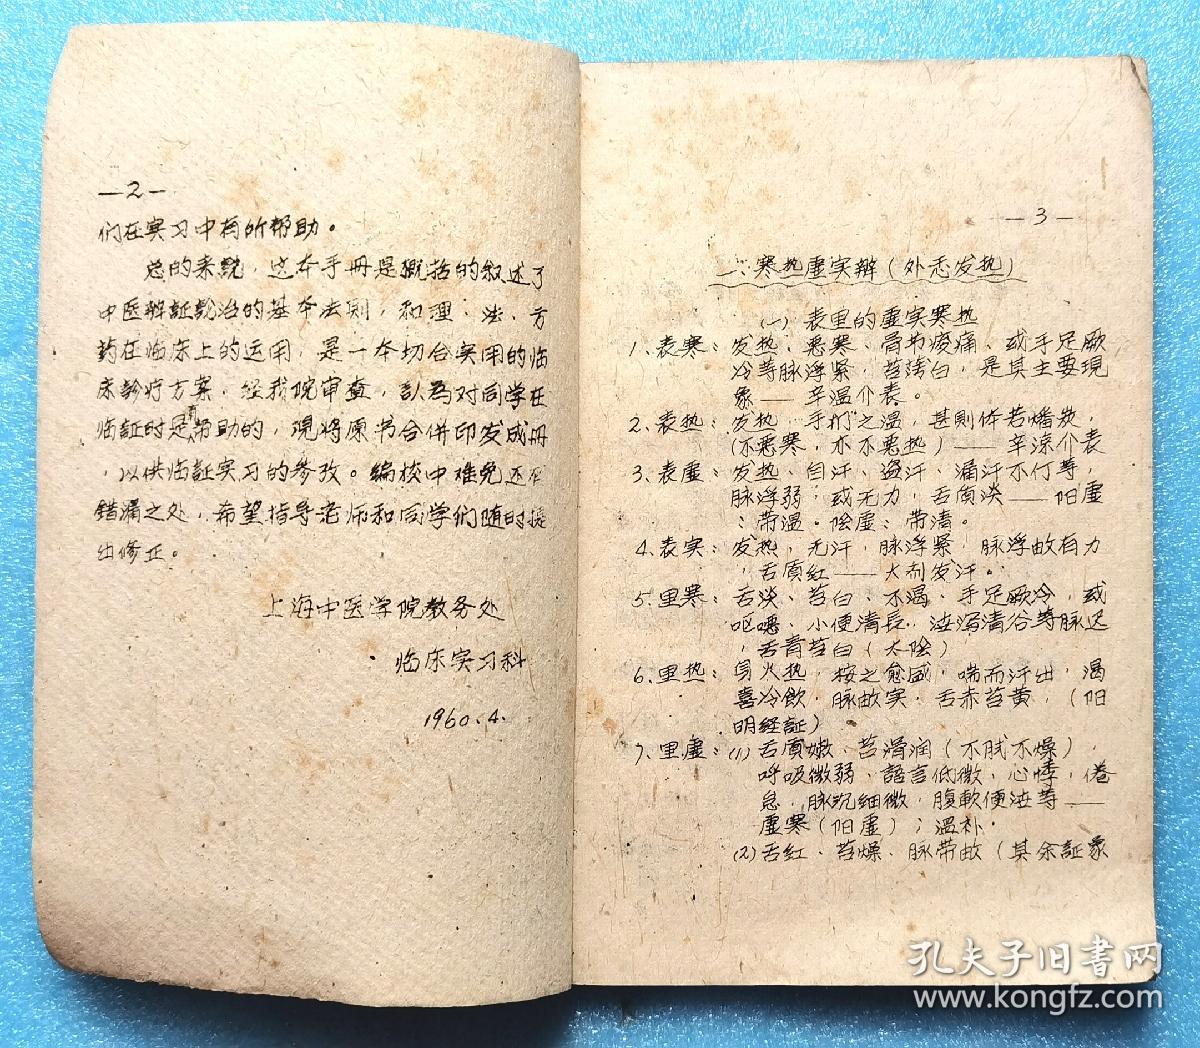 —2—
们在实习中有所帮助。
总的来説，这本手册是概括的叙述了
中医辨証論治的基本法则，和理、法、方
药在临床上的运用，是一本切合实用的临
床診疗方案，经我院审查，認為对同学在
临証时是有帮助的，現将原书合併印发成册
，以供临証实习的参攷。编校中难免还有
錯漏之处，希望指导老师和同学们随时提
出修正。
上海中医学院教务处
临床实习科
1960.4.
—3—
一、寒热虚实辩（外感发热）
(一) 表里的虚实寒热
1、表寒：发热、恶寒、肩背痠痛、或手足厥
冷等脉浮紧，苔薄白，是其主要現
象——辛温介表。
2、表热：发热，手扪之温，甚则体若燔炭，
（不恶寒，亦不恶热）——辛涼介表
3、表虚：发热、自汗、盗汗、漏汗不仃等，
脉浮弱；或无力，舌质淡——阳虚
：带温。陰虚：带清。
4、表实：发热，无汗，脉浮紧，脉浮数有力
，舌质红——大剂发汗。
5、里寒：舌淡、苔白、不渴、手足厥冷，或
呕噁、小便清長，泄泻清谷等脉迟
，舌青苔白（太陰）
6、里热：身火热，按之愈盛，喘而汗出，渴
喜冷飲，脉数实，舌赤苔黄，（阳
明经証）
7、里虚：(1) 舌质嫩、苔滑润（不腻不燥），
呼吸微弱、語言低微，心悸，倦
怠，脉沉细微，腹軟便泄等——
虚寒（阳虚）；温补。
(2) 舌红、苔燥、脉带数（其余証象
孔夫子旧書网
www.kongfz.com